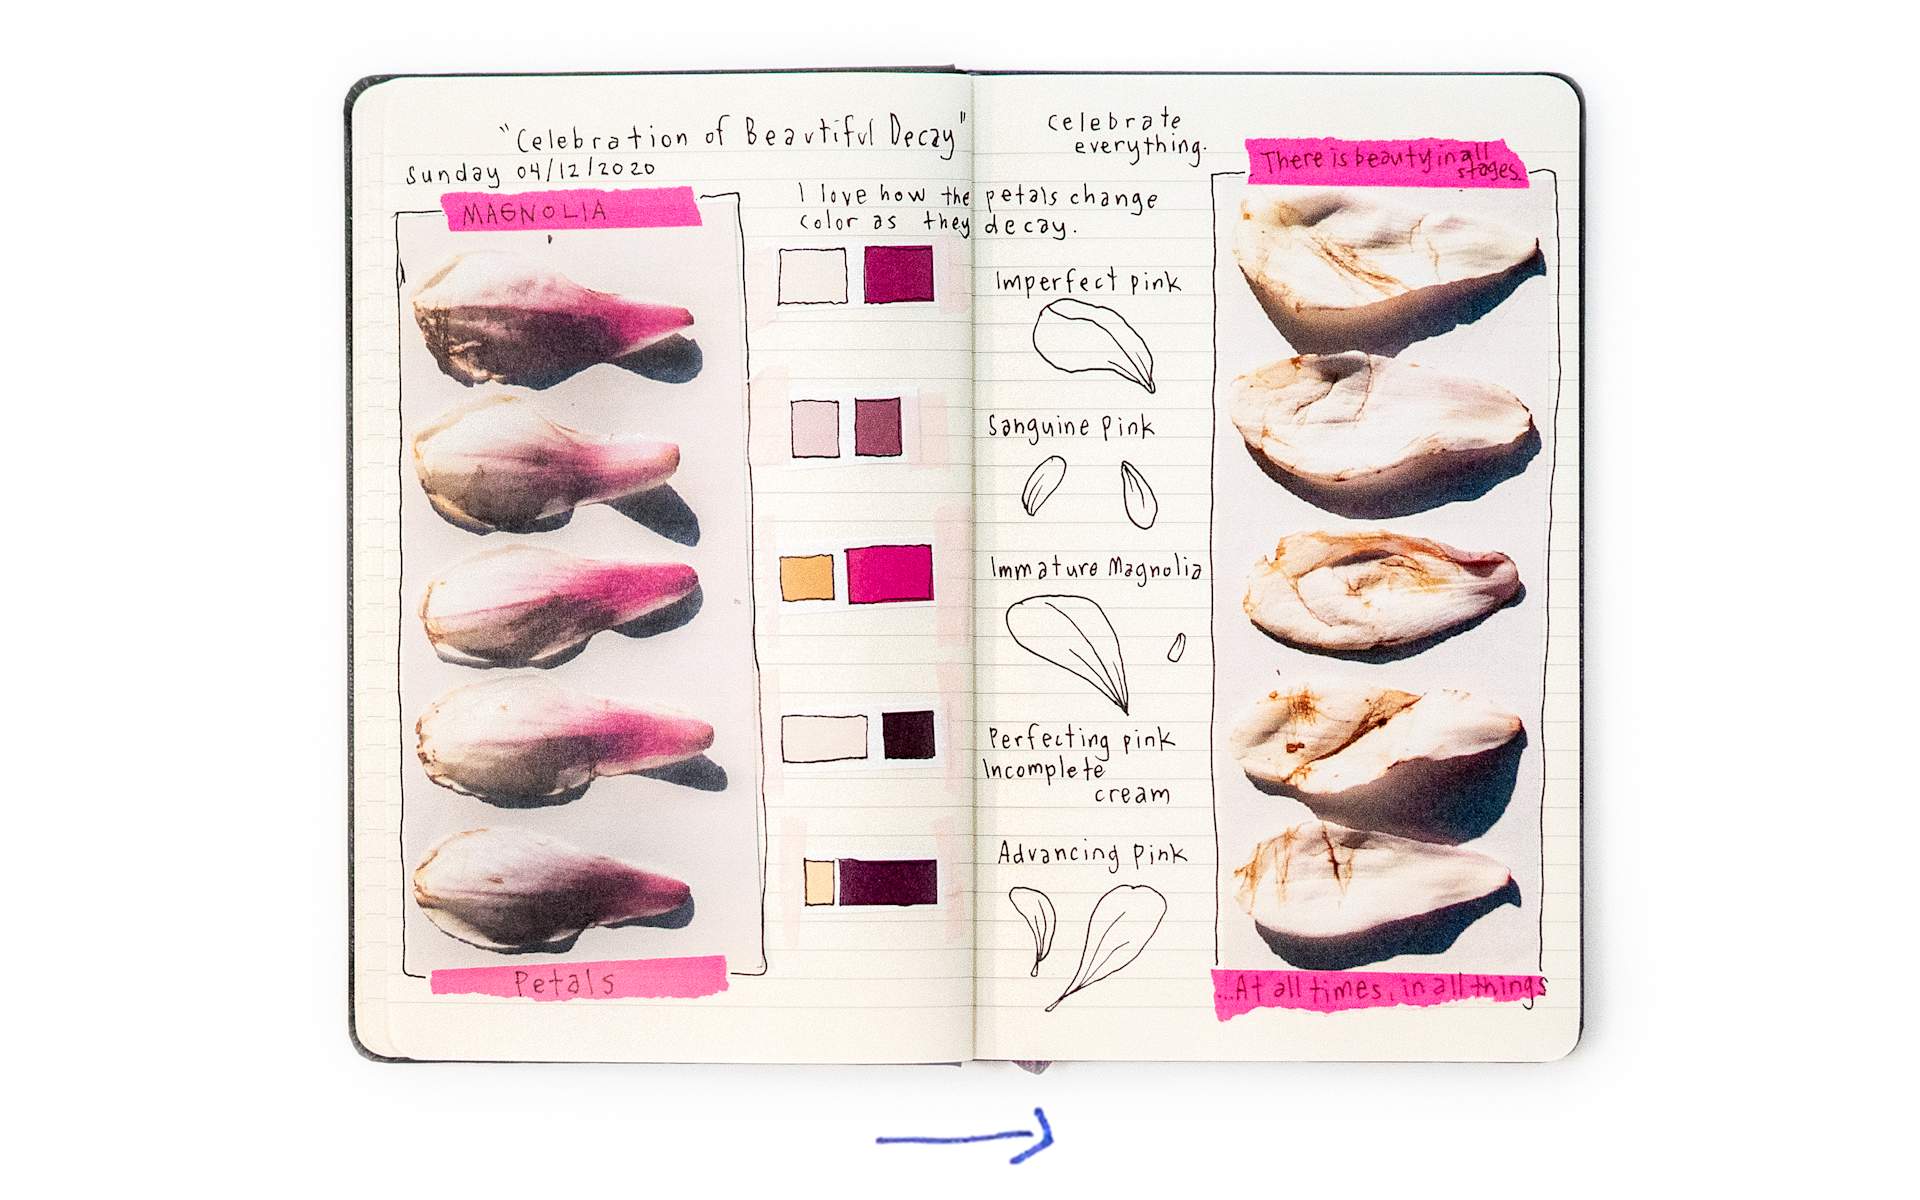 "Celebration of Beautiful Decay"
Sunday 04/12/2020
MAGNOLIA
Petals
I love how the petals change
color as they decay.
Celebrate
everything.
Imperfect pink
Sanguine Pink
Immature Magnolia
Perfecting pink
Incomplete
cream
Advancing Pink
There is beauty in all
stages.
...At all times, in all things